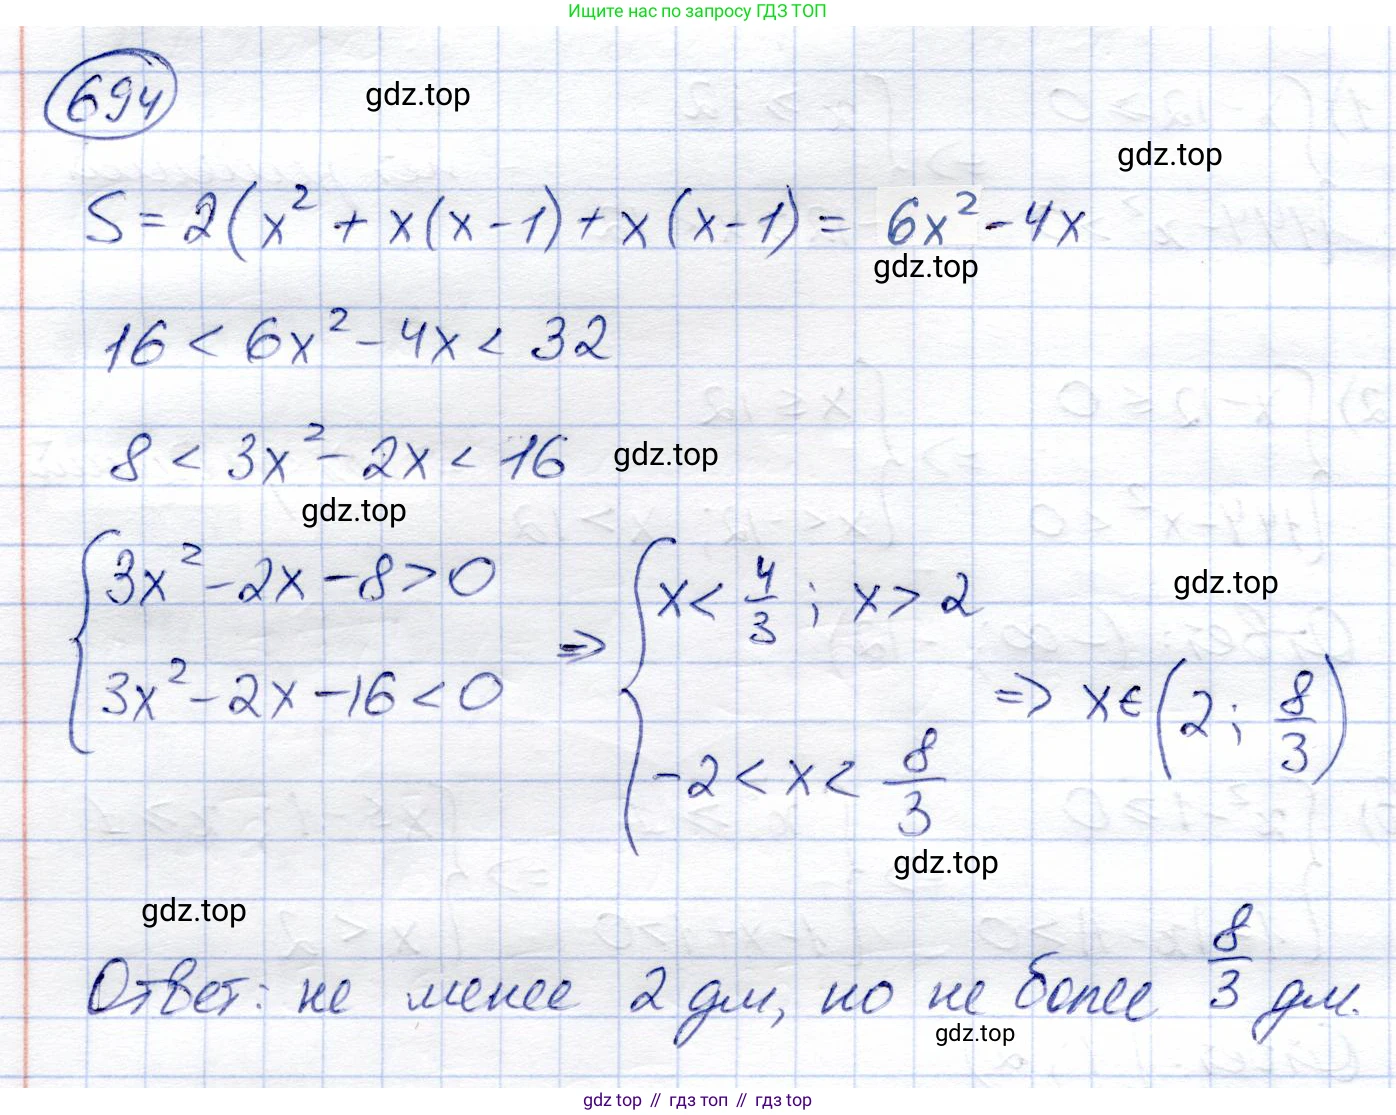 Ищите нас по запросу ГДЗ ТОП
694
gdz.top
gdz.top
S = 2(x² + x(x-1) + x(x-1) = 6x² - 4x
gdz.top
16 < 6x² - 4x < 32
8 < 3x² - 2x < 16
gdz.top
gdz.top
{ 3x² - 2x - 8 > 0
3x² - 2x - 16 < 0
⇒ { x < 4/3 ; x > 2
-2 < x < 8/3
⇒ x ∈ (2 ; 8/3)
gdz.top
gdz.top
gdz.top
Ответ: не менее 2 дм, но не более 8/3 дм.
gdz.top
gdz top // гдз топ // gdz top